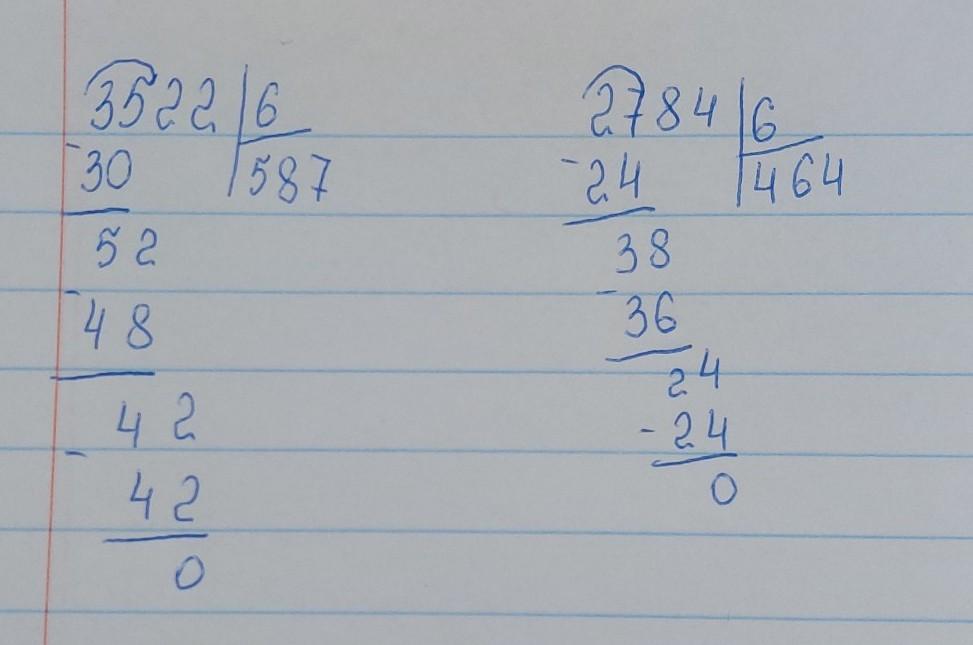 3522 | 6
- 30 | 587
52
- 48
42
- 42
0
2784 | 6
- 24 | 464
38
- 36
24
- 24
0